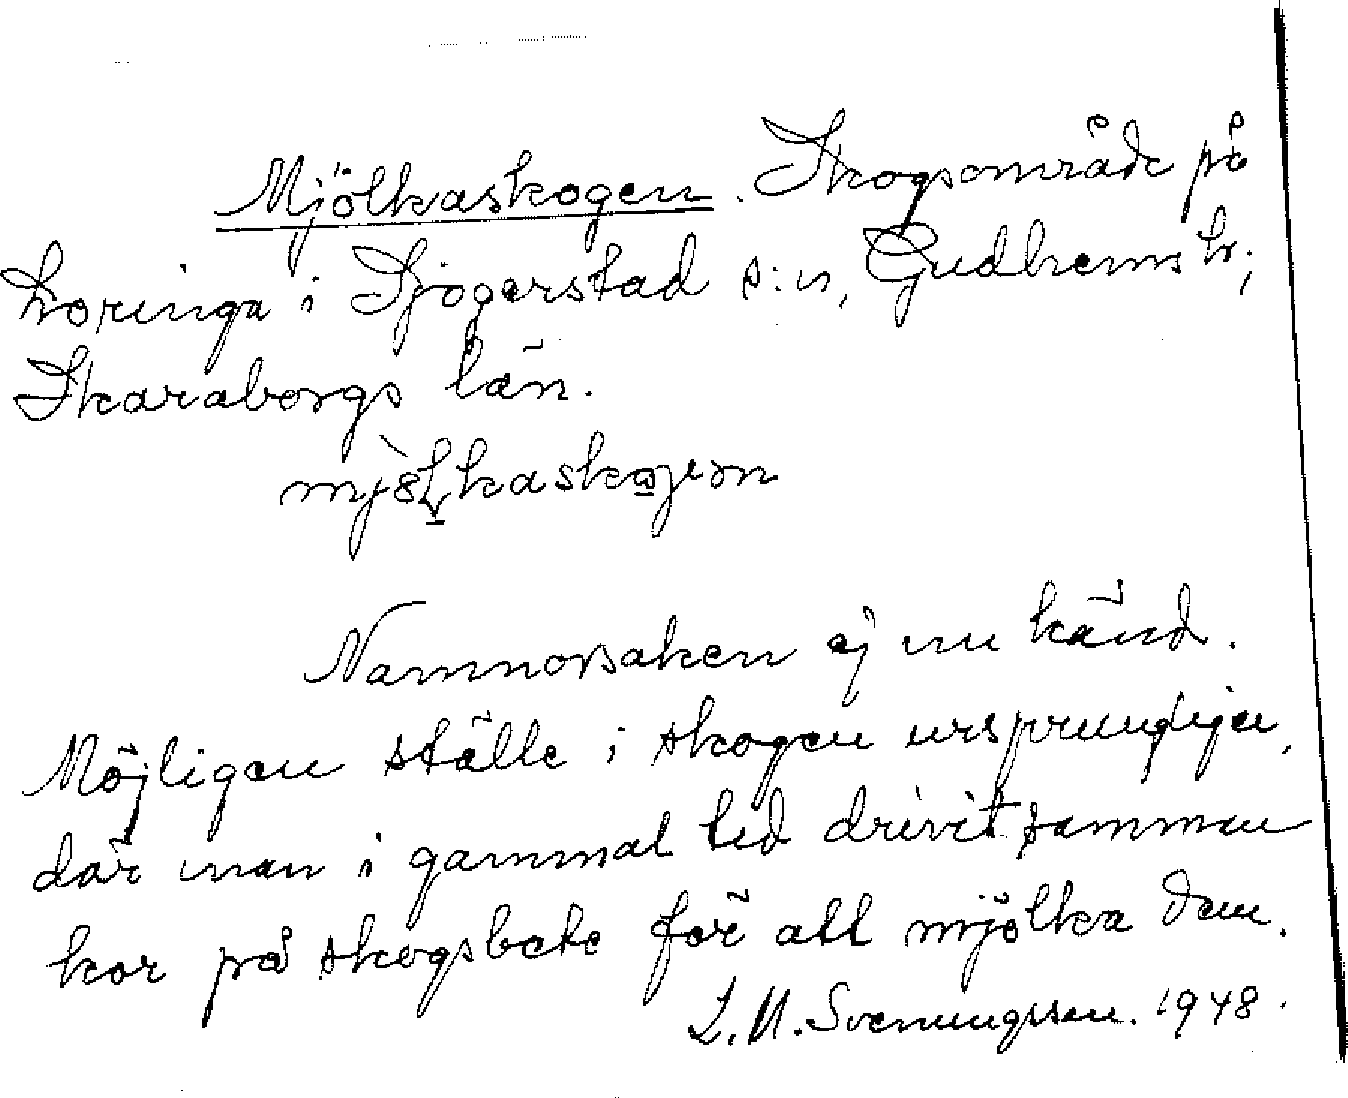 Mjölkaskogen. Skogsområde på
Loringa i Sjogerstad s:n, Gudhems hr;
Skaraborgs län.
Namnorsaken ej nu känd.
Möjligen ställe i skogen ursprungligen,
där man i gammal tid drivit samman
kor på skogsbete för att mjölka dem.
L. M. Svenungsson. 1948.